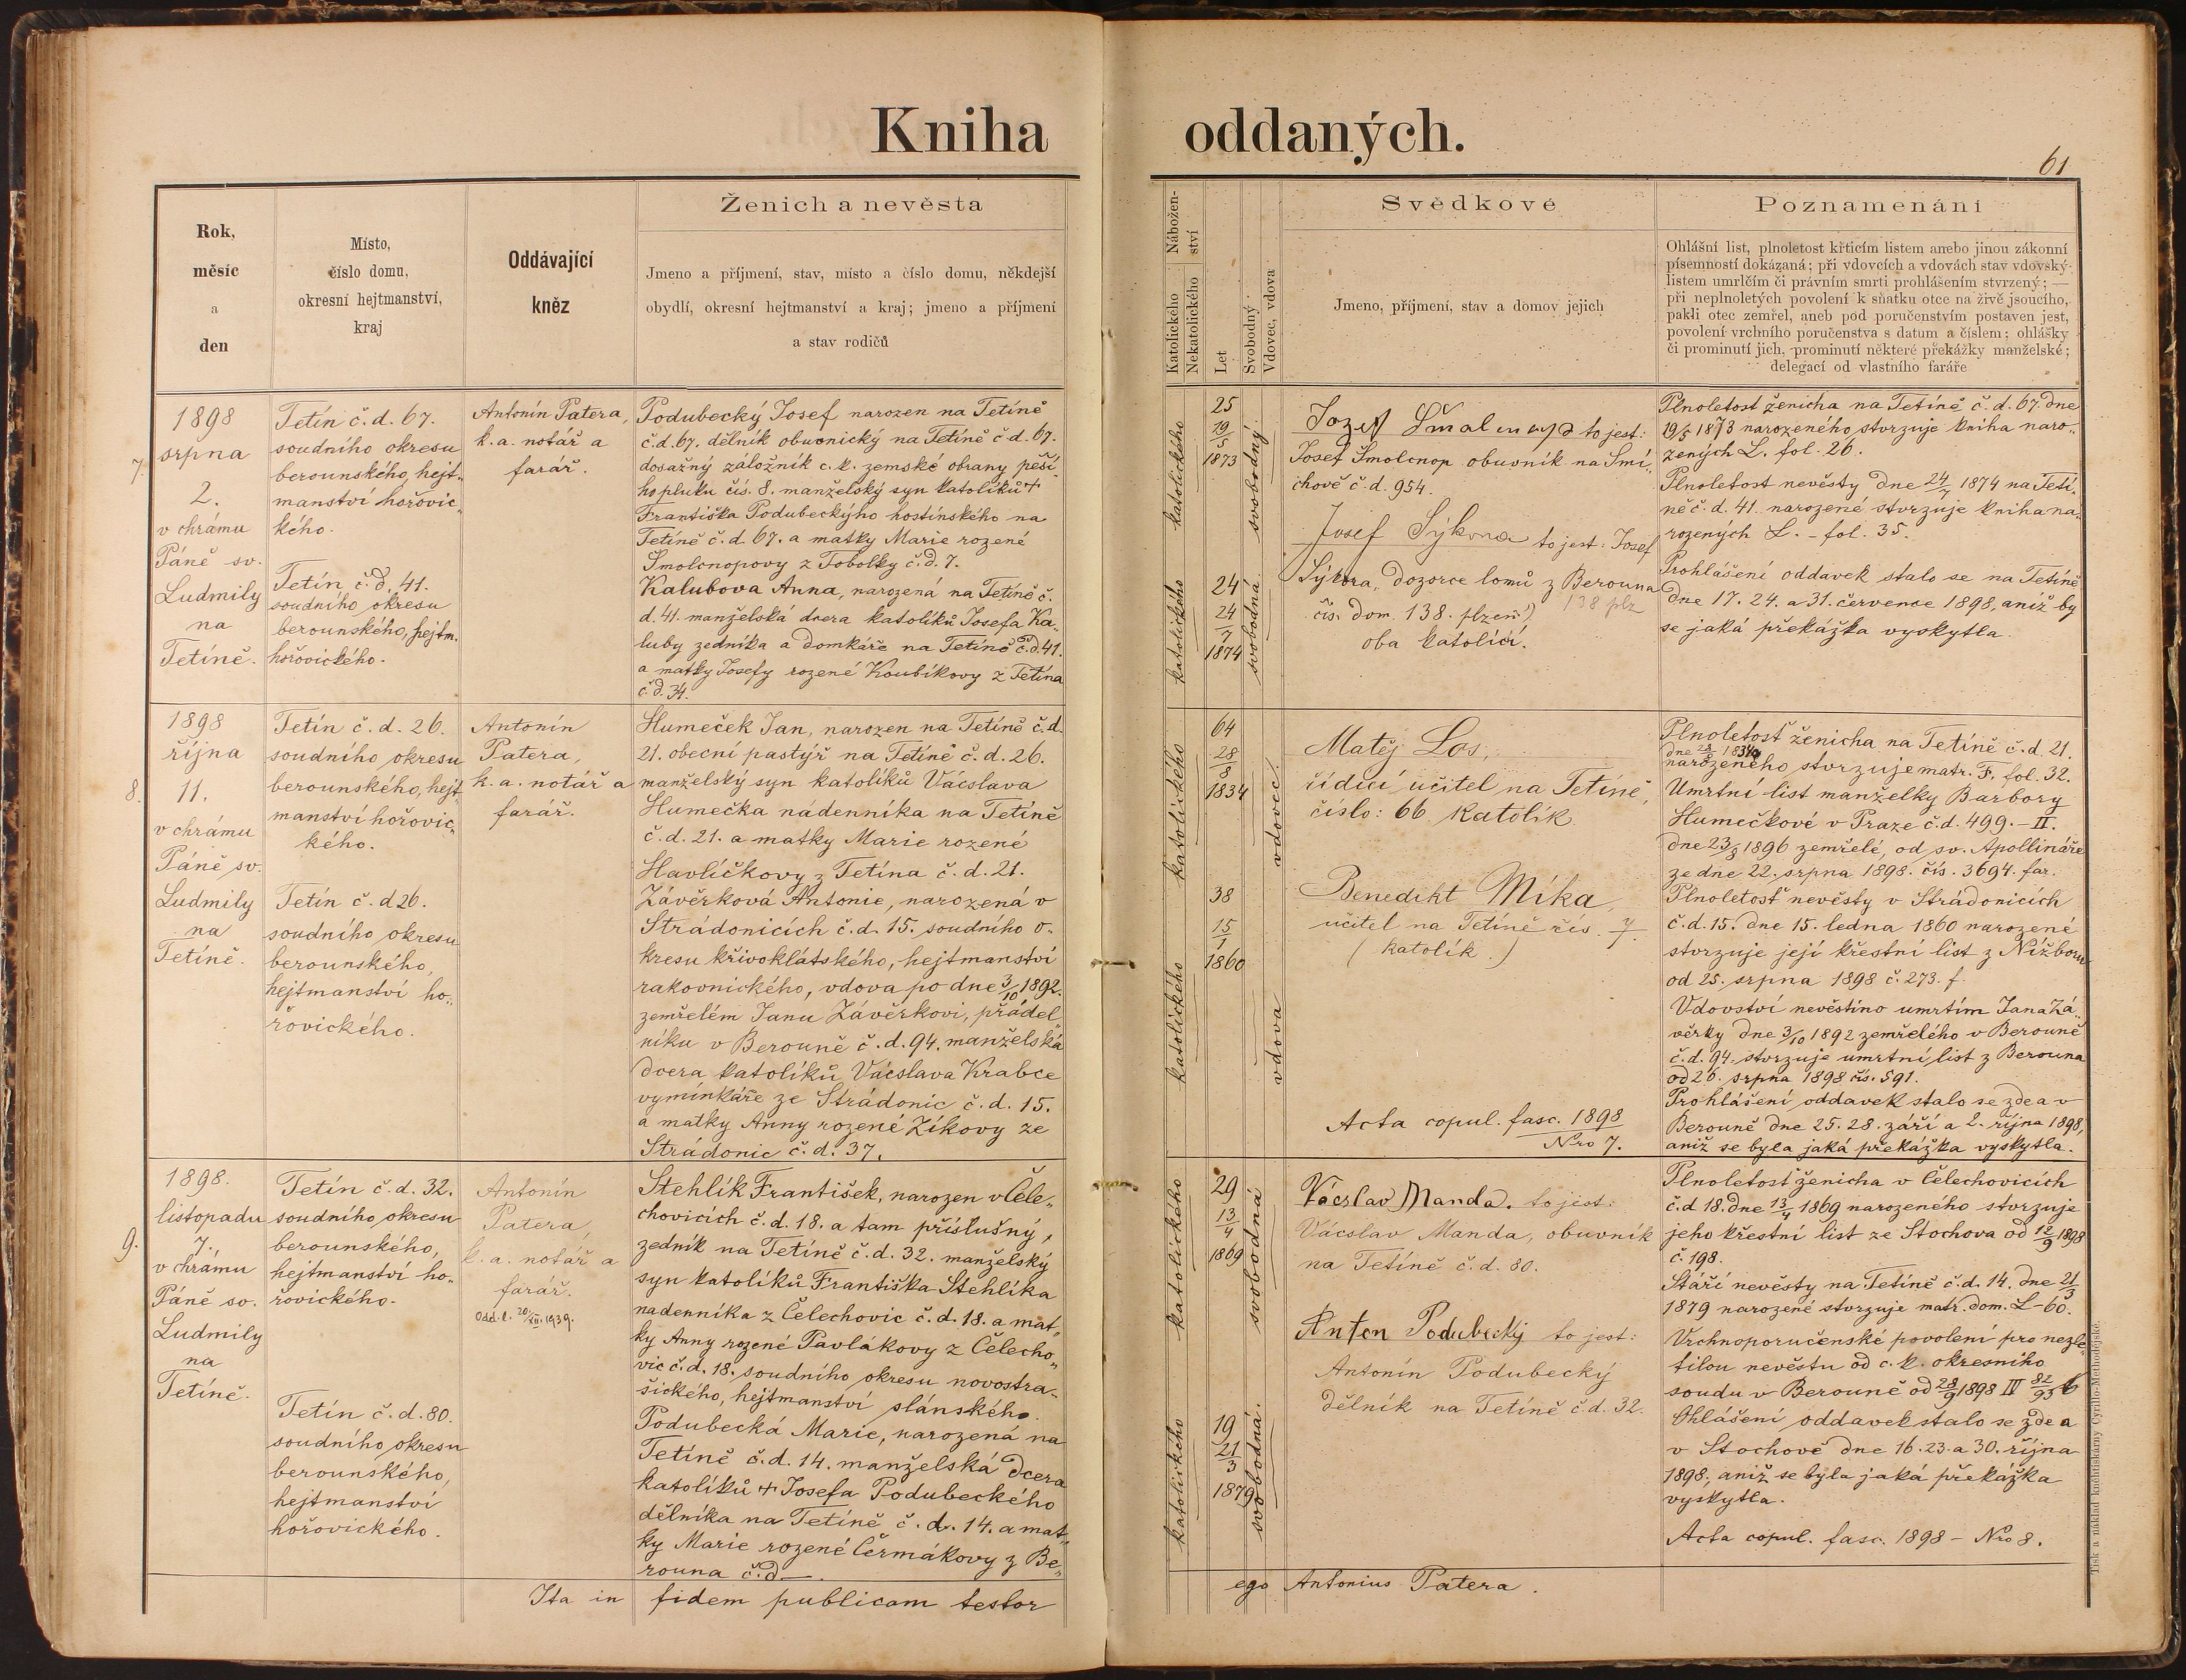 Kniha oddaných.
61
Rok,
měsíc
a
den
Místo,
číslo domu,
okresní hejtmanství,
kraj
Oddávající
kněz
Ženich a nevěsta
Jmeno a příjmení, stav, místo a číslo domu, někdejší
obydlí, okresní hejtmanství a kraj; jmeno a příjmení
a stav rodičů
Nábožen-
ství
Katolického
Nekatolického
Let
Svobodný
Vdovec, vdova
Svědkové
Jmeno, příjmení, stav a domov jejich
Poznamenání
Ohlášní list, plnoletost křticím listem anebo jinou zákonní
písemností dokázaná; při vdovcích a vdovách stav vdovský
listem umrlčím či právním smrti prohlášením stvrzený; —
při neplnoletých povolení k sňatku otce na živě jsoucího,
pakli otec zemřel, aneb pod poručenstvím postaven jest,
povolení vrchního poručenstva s datum a číslem; ohlášky
či prominutí jich, prominutí některé překážky manželské;
delegací od vlastního faráře
7.
1898
srpna
2.
v chrámu
Páně sv.
Ludmily
na
Tetíně.
Tetín č. d. 67.
soudního okresu
berounského, hejt-
manství hořovic-
kého.
Tetín č. d. 41.
soudního okresu
berounského, hejtm.
hořovického.
Antonín Patera,
k. a. notář a
farář.
Podubecký Josef narozen na Tetíně
č. d. 67. dělník obuvnický na Tetíně č d. 67.
dosažný záložník c. k. zemské obrany pěší-
ho pluku čís. 8. manželský syn katolíků +
Františka Podubeckýho hostinského na
Tetíně č. d. 67. a matky Marie rozené
Šmolcnopovy z Tobolky č. d. 7.
Kalubova Anna, narozená na Tetíně č.
d. 41. manželská dcera katolíků Josefa Ka-
luby zedníka a domkáře na Tetíně č. d. 41.
a matky Josefy rozené Koubíkovy z Tetína
č. d. 34.
katolického
25
19/5
1873
svobodný
katolického
24
24/7
1874
svobodná.
to jest:
Josef Šmolcnop obuvník na Smí-
chově č. d. 954.
Josef Sýkora to jest: Josef
Sýkora, dozorce lomů z Berouna
138 plz
čís. dom. 138. plzeň.)
oba katolíci.
Plnoletost ženicha na Tetíně č. d. 67. dne
19/5 1873 narozeného stvrzuje kniha naro-
zených L. fol. 26.
Plnoletost nevěsty dne 24/7 1874 na Tetí-
ně č. d. 41. narozené stvrzuje kniha na-
rozených L. – fol. 35.
Prohlášení oddavek stalo se na Tetíně
dne 17. 24. a 31. července 1898, aniž by
se jaká překážka vyskytla.
8.
1898
října
11.
v chrámu
Páně sv.
Ludmily
na
Tetíně.
Tetín č. d. 26.
soudního okresu
berounského, hejt-
manství hořovic-
kého.
Tetín č. d 26.
soudního okresu
berounského,
hejtmanství ho-
řovického.
Antonín
Patera,
k. a. notář a
farář.
Humeček Jan, narozen na Tetíně č. d.
21. obecní pastýř na Tetíně č. d. 26.
manželský syn katolíků Vácslava
Humečka nádenníka na Tetíně
č. d. 21. a matky Marie rozené
Havlíčkovy z Tetína č. d. 21.
Závěrková Antonie, narozená v
Strádonicích č. d. 15. soudního o-
kresu křivoklátského, hejtmanství
rakovnického, vdova po dne 3/10 1892.
zemřelém Janu Závěrkovi, přádel-
níku v Berouně č. d. 94. manželská
dcera katolíků Vácslava Krabce
vymínkáře ze Strádonic č. d. 15.
a matky Anny rozené Zíkovy ze
Strádonic č. d. 37.
katolického
64
28/8
1834
vdovec.
katolického
38
15/1
1860
vdova
Matěj Los,
řídící učitel na Tetíně,
číslo: 66 katolík
Benedikt Míka,
učitel na Tetíně čís. 7.
(katolík.)
Acta copul. fasc. 1898
Nro 7.
Plnoletost ženicha na Tetíně č. d. 21.
dne 28/8 1834
narozeného stvrzuje matr. F. fol. 32.
Umrtní list manželky Barbory
Humečkové v Praze č. d. 499. – II.
dne 23/8 1896 zemřelé, od sv. Apollináře
ze dne 22. srpna 1898. čís. 3694. far.
Plnoletost nevěsty v Strádonicích
č. d. 15. dne 15. ledna 1860 narozené
stvrzuje její křestní list z Nížboru
od 25. srpna 1898 č. 273. f.
Vdovství nevěstino umrtím Jana Zá-
věrky dne 3/10 1892 zemřelého v Berouně
č. d. 94. stvrzuje umrtní list z Berouna
od 26. srpna 1898 čís. 591.
Prohlášení oddavek stalo se zde a v
Berouně dne 25. 28. září a 2. října 1898,
aniž se byla jaká překážka vyskytla.
9.
1898.
listopadu
7.
v chrámu
Páně sv.
Ludmily
na
Tetíně.
Tetín č. d. 32.
soudního okresu
berounského,
hejtmanství ho-
řovického.
Tetín č. d. 80.
soudního okresu
berounského,
hejtmanství
hořovického.
Antonín
Patera,
k. a. notář a
farář.
Odd. l. 20./XII. 1939.
Stehlík František, narozen v Čele-
chovicích č. d. 18. a tam příslušný,
zedník na Tetíně č. d. 32. manželský
syn katolíků Františka Stehlíka
nadenníka z Čelechovic č. d. 18. a mat-
ky Anny rozené Pavlákovy z Čelecho-
vic č. d. 18. soudního okresu novostra-
šického, hejtmanství slánského.
Podubecká Marie, narozená na
Tetíně č. d. 14. manželská dcera
katolíků + Josefa Podubeckého
dělníka na Tetíně č. d. 14. a mat-
ky Marie rozené Čermákovy z Be-
rouna č. d —.
katolického
29
13/4
1869
svobodná
katolického
19
21/3
1879
svobodná.
Vácslav Manda. to jest:
Vácslav Manda, obuvník
na Tetíně č. d. 80.
Anton Podubecký to jest:
Antonín Podubecký
dělník na Tetíně č d. 32.
Plnoletost ženicha v Čelechovicích
č. d 18. dne 13/4 1869 narozeného stvrzuje
jeho křestní list ze Stochova od 12/9 1898
č. 198.
Stáří nevěsty na Tetíně č. d. 14. dne 21/3
1879 narozené stvrzuje matr. dom. L – 60.
Vrchnoporučenské povolení pro nezle-
tilou nevěstu od c. k. okresního
soudu v Berouně od 28/9 1898 IV 82/95
Ohlášení oddavek stalo se zde a
v Stochově dne 16. 23. a 30. října
1898, aniž se byla jaká překážka
vyskytla.
Acta copul. fasc. 1898 – Nro 8.
Ita in fidem publicam testor ego Antonius Patera.
Tisk a náklad knihtiskárny Cyrillo-Methodějské.